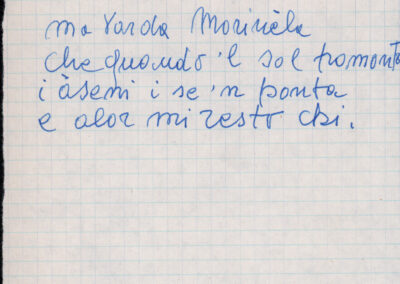 ma varda Morinèla
che quando 'l sol tramonta
i àseni i se 'n ponta
e alor mi resto chi.